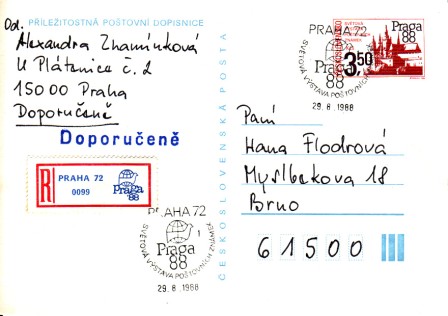 Od.
PŘÍLEŽITOSTNÁ POŠTOVNÍ DOPISNICE
Alexandra Znamínková
U Plátenice č. 2
15000 Praha
Doporučeně
Doporučeně
R PRAHA 72
0099
Praga
'88
PRAHA 72
Praga
88
SVĚTOVÁ VÝSTAVA POŠTOVNÍCH ZNÁMEK
29.8.1988
ČESKOSLOVENSKÁ POŠTA
PRAHA 72
Praga
88
SVĚTOVÁ VÝSTAVA POŠTOVNÍCH
29.8.1988
ČESKOSLOVENSKO
SVĚTOVÁ
VÝSTAVA
POŠTOVNÍCH
ZNÁMEK
Praga
88
3,50
Paní
Hana Flodrová
Myslbekova 18
Brno
61500